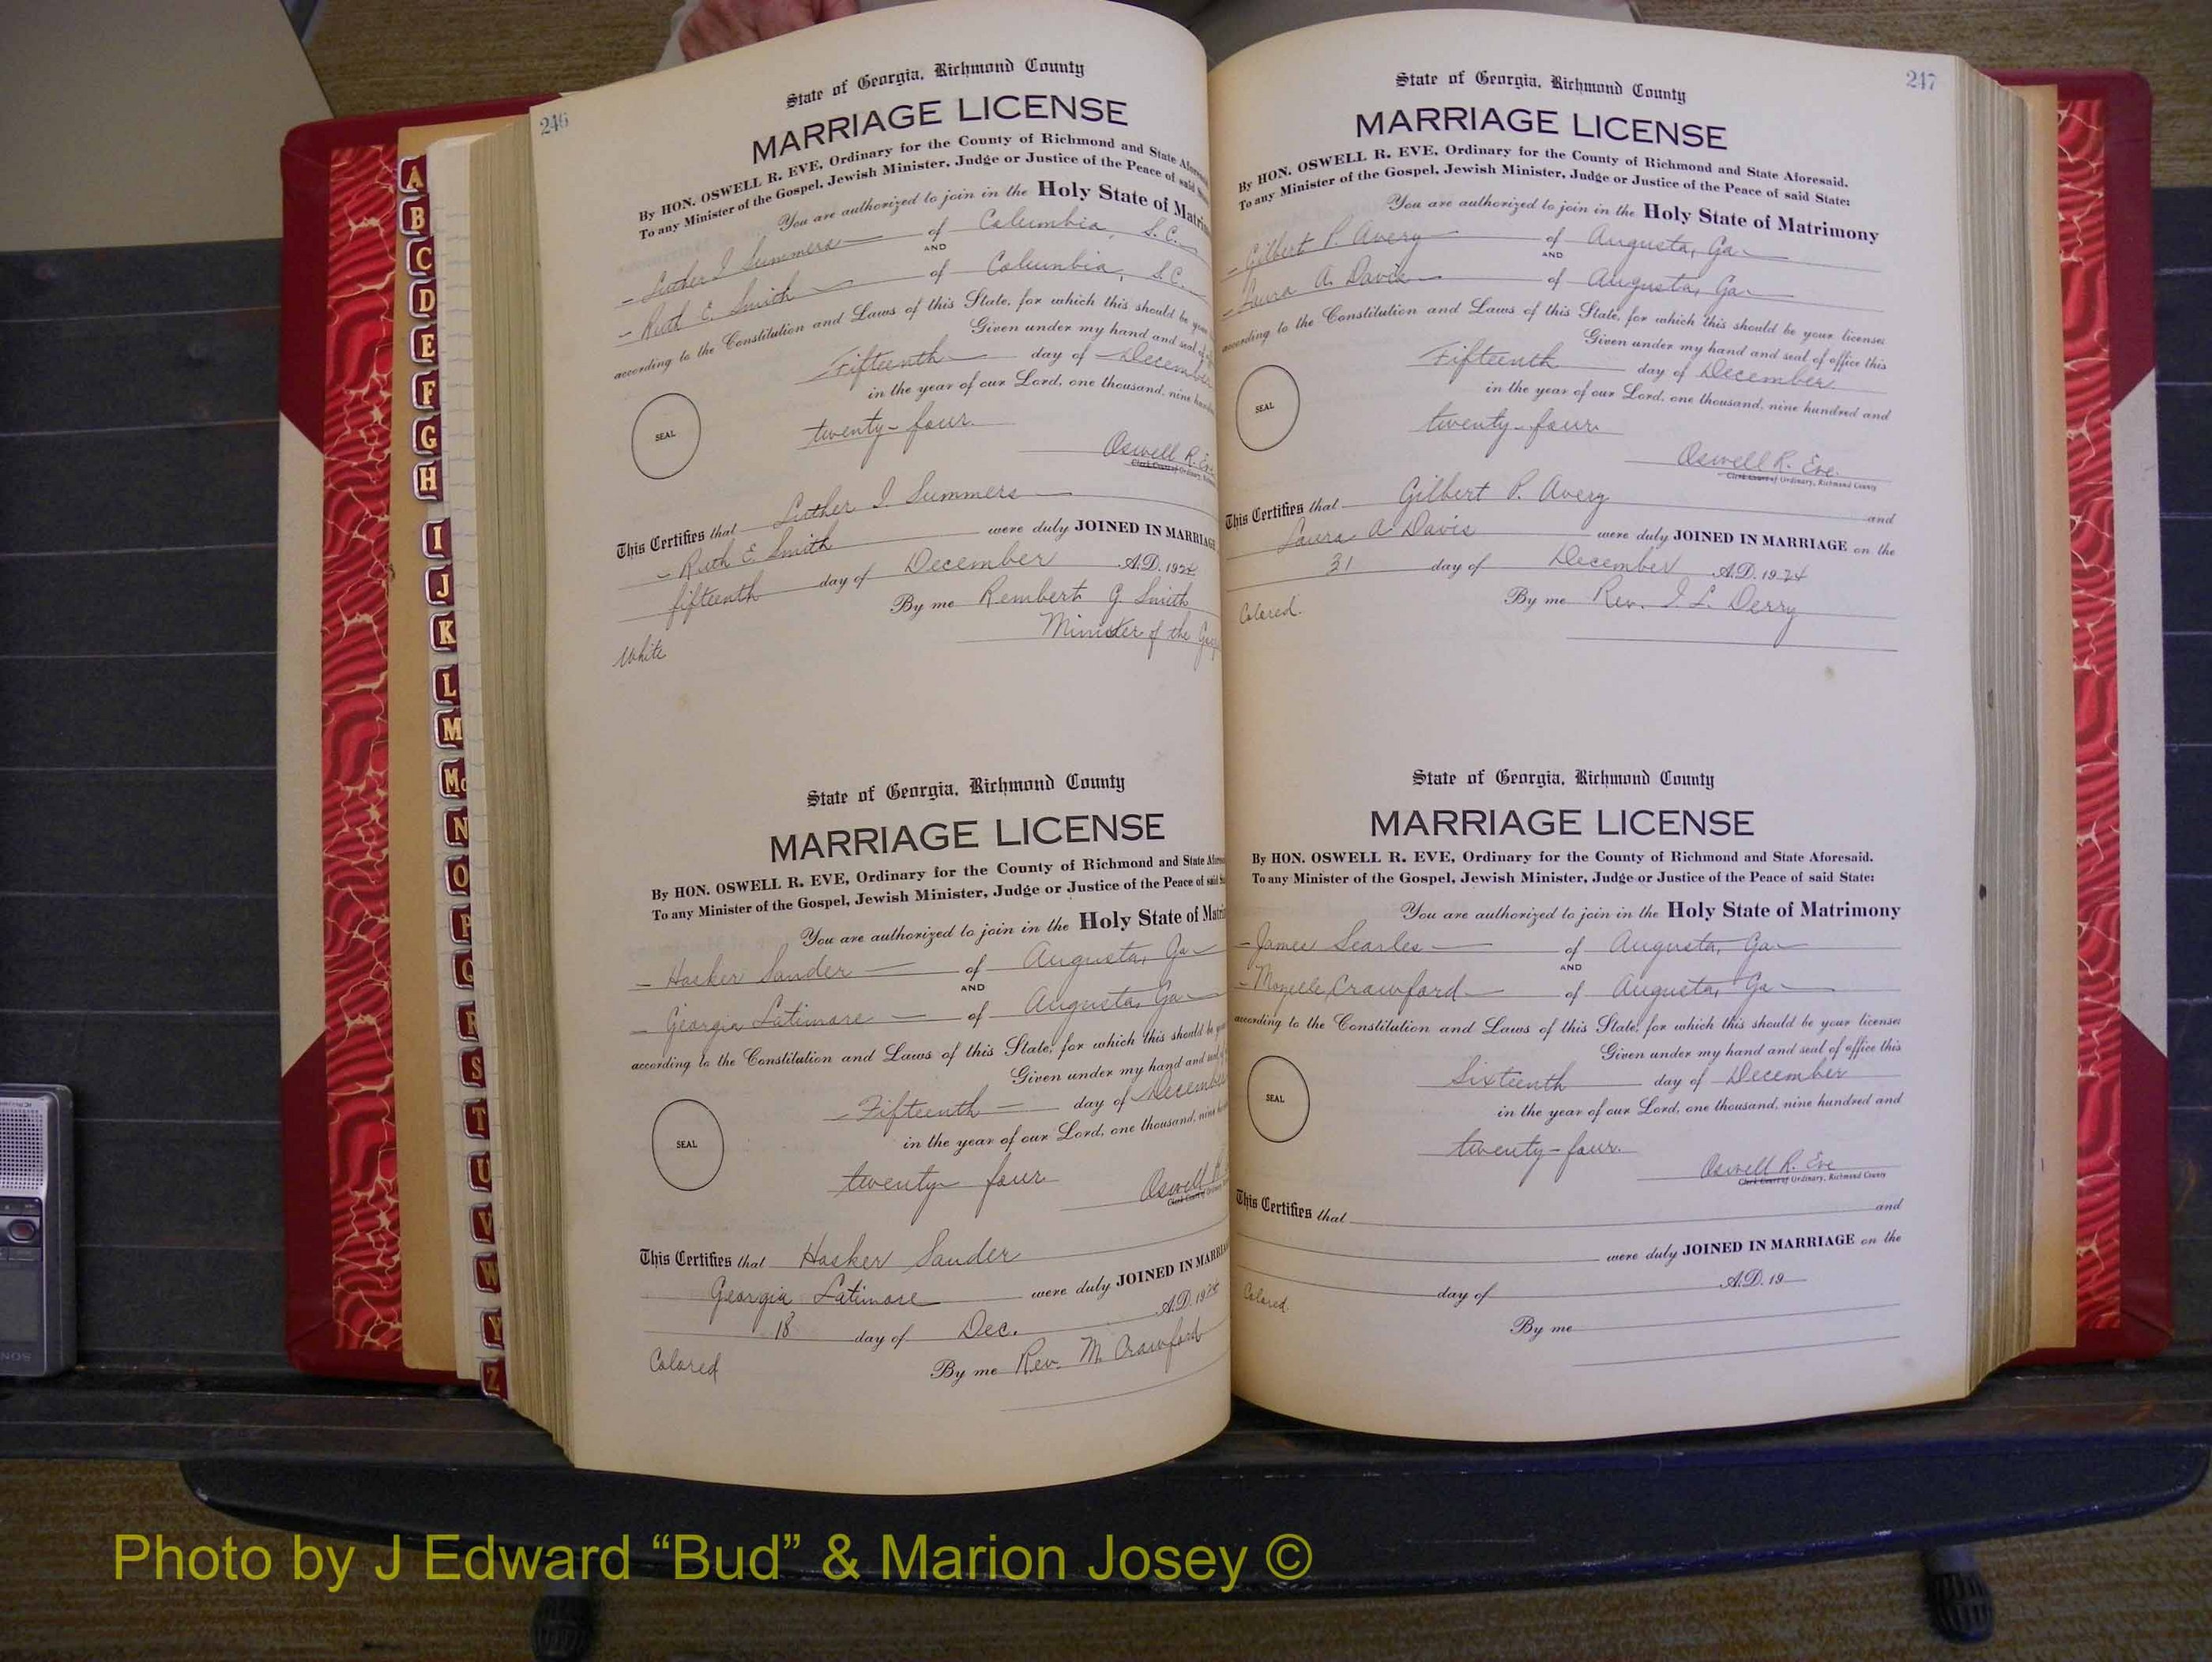 246
State of Georgia, Richmond County
MARRIAGE LICENSE
By HON. OSWELL R. EVE, Ordinary for the County of Richmond and State Afores
To any Minister of the Gospel, Jewish Minister, Judge or Justice of the Peace of said
You are authorized to join in the Holy State of Matri
Luther I Summers of Columbia, S.C.
AND
Ruth E. Smith of Columbia, S.C.
according to the Constitution and Laws of this State, for which this should be
Given under my hand and seal of
Fifteenth day of December
in the year of our Lord, one thousand, nine hund
SEAL
twenty-four
Oswell R. Eve
Clerk Court of Ordinary,
This Certifies that Luther I Summers
Ruth E. Smith were duly JOINED IN MARRIAGE
fifteenth day of December A.D. 1924
By me Rembert G. Smith
Minister of the
White
State of Georgia, Richmond County
MARRIAGE LICENSE
By HON. OSWELL R. EVE, Ordinary for the County of Richmond and State
To any Minister of the Gospel, Jewish Minister, Judge or Justice of the Peace of said
You are authorized to join in the Holy State of Matri
Hasker Sander of Augusta, Ga
AND
Georgia Latimore of Augusta, Ga
according to the Constitution and Laws of this State, for which this should be
Given under my hand and seal
Fifteenth day of December
in the year of our Lord, one thousand, nine
SEAL
twenty four
Oswell R
Clerk Court of
This Certifies that Hasker Sander
Georgia Latimore were duly JOINED IN MARRIA
18 day of Dec. A.D. 1924
Colored By me Rev. M. Crawford
247
State of Georgia, Richmond County
MARRIAGE LICENSE
By HON. OSWELL R. EVE, Ordinary for the County of Richmond and State Aforesaid.
To any Minister of the Gospel, Jewish Minister, Judge or Justice of the Peace of said State:
You are authorized to join in the Holy State of Matrimony
Gilbert P. Avery of Augusta, Ga
AND
Laura A. Davis of Augusta, Ga
according to the Constitution and Laws of this State, for which this should be your licenses
Given under my hand and seal of office this
Fifteenth day of December
in the year of our Lord, one thousand, nine hundred and
SEAL
twenty-four
Oswell R. Eve
Clerk Court of Ordinary, Richmond County
This Certifies that Gilbert P. Avery and
Laura A Davis were duly JOINED IN MARRIAGE on the
31 day of December A.D. 1924
Colored. By me Rev. I. L. Derry
State of Georgia, Richmond County
MARRIAGE LICENSE
By HON. OSWELL R. EVE, Ordinary for the County of Richmond and State Aforesaid.
To any Minister of the Gospel, Jewish Minister, Judge or Justice of the Peace of said State:
You are authorized to join in the Holy State of Matrimony
James Searles of Augusta, Ga
AND
Mozelle Crawford of Augusta, Ga
according to the Constitution and Laws of this State, for which this should be your licenses
Given under my hand and seal of office this
Sixteenth day of December
in the year of our Lord, one thousand, nine hundred and
SEAL
twenty-four
Oswell R. Eve
Clerk Court of Ordinary, Richmond County
This Certifies that and
were duly JOINED IN MARRIAGE on the
day of A.D. 19
Colored.
By me
A
B
C
D
E
F
G
H
I
J
K
L
M
Mc
N
O
P
Q
R
S
T
U
V
W
Y
Z
SONY
Photo by J Edward “Bud” & Marion Josey ©